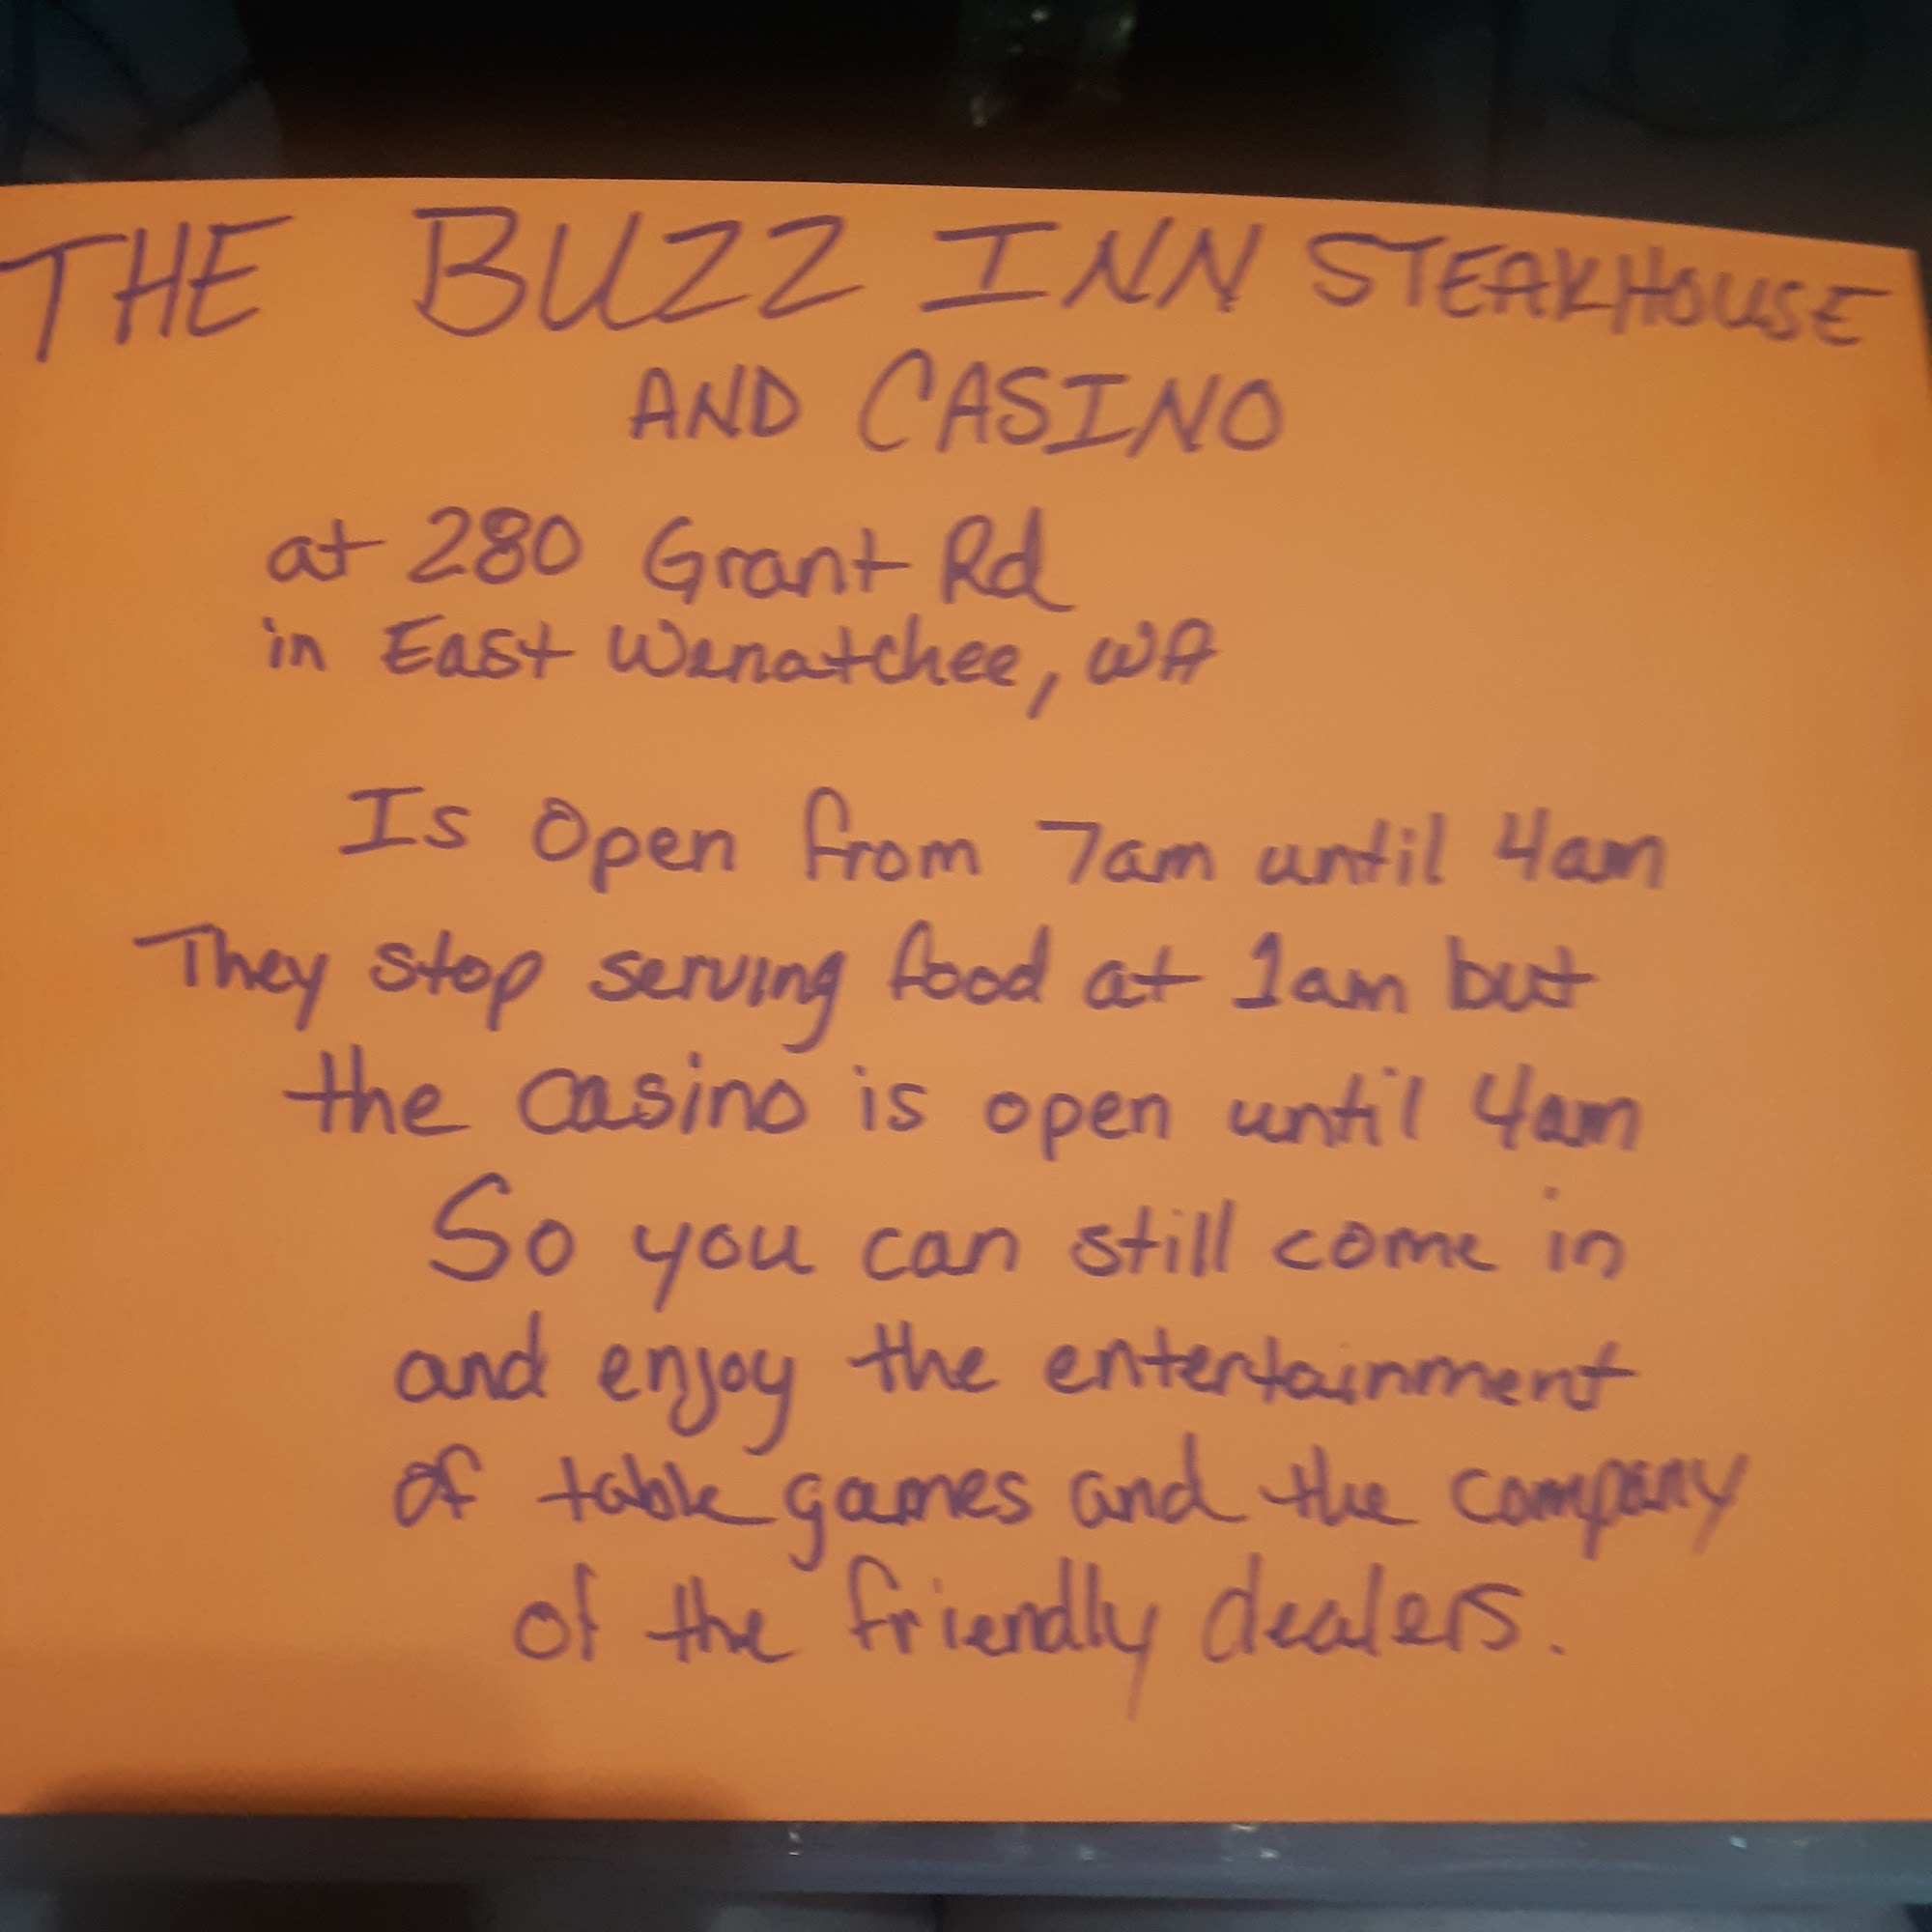 THE BUZZ INN STEAKHOUSE
AND CASINO
at 280 Grant Rd
in East Wenatchee, WA
Is Open from 7am until 4am
They stop serving food at 1am but
the casino is open until 4am
So you can still come in
and enjoy the entertainment
of table games and the company
of the friendly dealers.